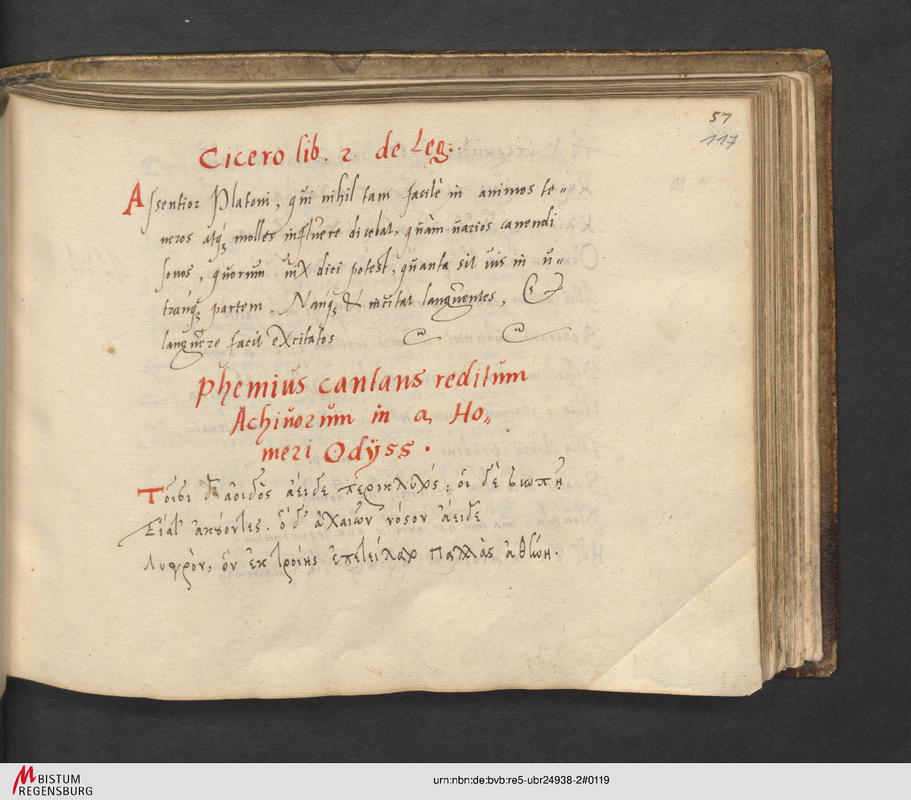 57
117
Cicero lib. 2 de Leg:.
Assentior Platoni, qui nihil tam facilè in animos te=
neros atq₃ molles influere dicebat, quàm uarios canendi
sonos, quorum uix dici potest, quanta sit uis in u=
tramq₃ partem. Namq₃ & incitat languentes, &
languere facit excitatos
Phemius cantans reditum
Achiuorum in α Ho=
meri Odÿss.
Τοῖσι δ' ἀοιδὸς ἄειδε περικλυτός: οἱ δὲ σιωπῇ
Εἵατ' ἀκούοντες. ὁ δ' ἀχαιῶν νόσον ἄειδε
λυγρὸν, ὃν ἐκ τροίης ἐπετείλατο παλλὰς ἀθήνη.
BISTUM
REGENSBURG
urn:nbn:de:bvb:re5-ubr24938-2#0119